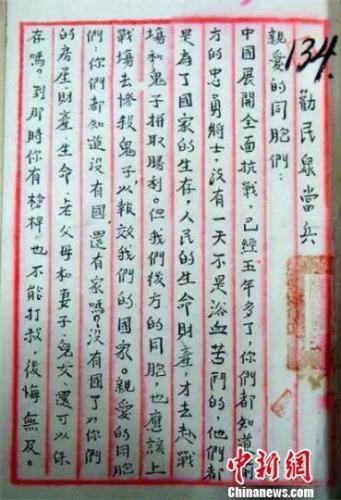 134.
勸民眾當兵
親愛的同胞們：
中國展開全面抗戰，已經五年多了，你們都知道前
方的忠勇將士，沒有一天不是浴血苦鬥的，他們都
是為了國家的生存，人民的生命財產，才去赴戰
塲和鬼子拼取勝利。但我們後方的同胞，也應該上
戰塲去慘殺鬼子，以報效我們的國家。親愛的同胞
們：你們都知道沒有國，還有家嗎？沒有國了，你們
的房屋，財產，生命，老父母和妻子，兒女，還可以保
存嗎？到那時你有槍桿也不能打救，後悔無及。
中新网